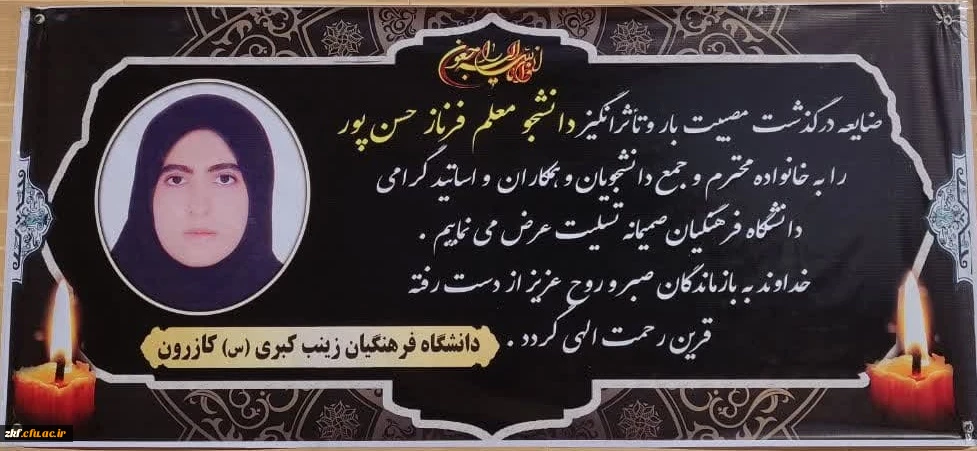 انا لله و انا الیه راجعون
ضایعه درگذشت مصیبت بار و تأثرانگیز دانشجو معلم فرناز حسن پور
را به خانواده محترم و جمع دانشجویان و همکاران و اساتید گرامی
دانشگاه فرهنگیان صمیمانه تسلیت عرض می نماییم .
خداوند به بازماندگان صبر و روح عزیز از دست رفته
قرین رحمت الهی گردد .
دانشگاه فرهنگیان زینب کبری (س) کازرون
zkf.cfu.ac.ir